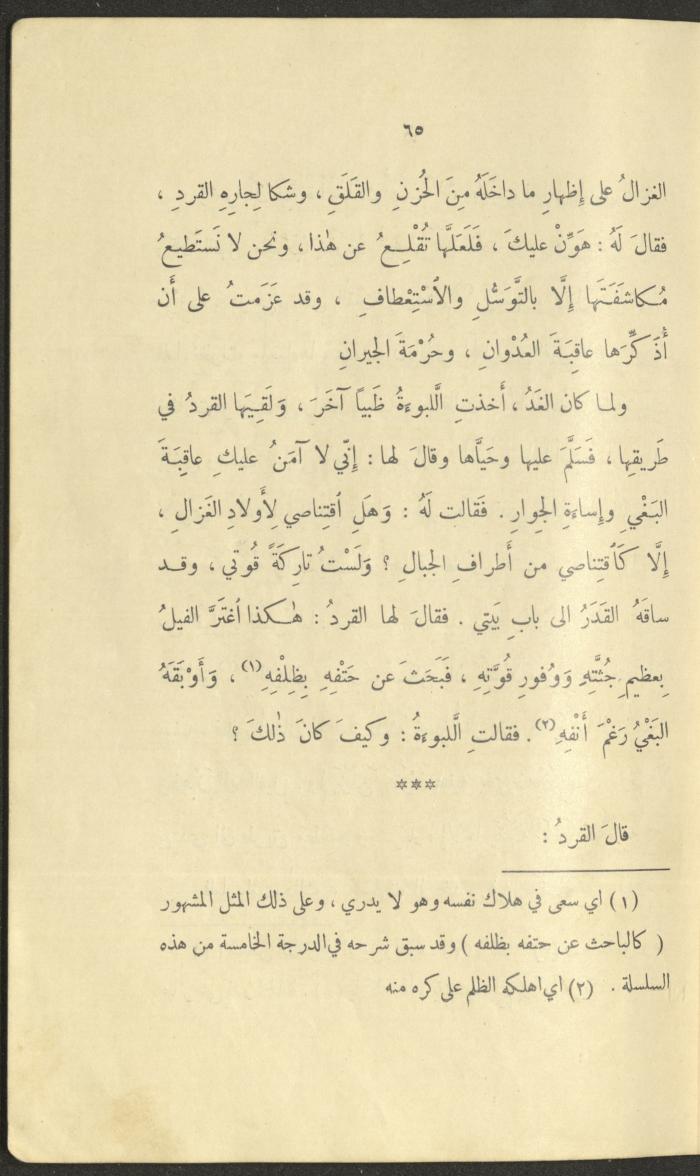 ٦٥
الغزالُ على إِظهارِ ما داخَلَهُ مِنَ الحُزنِ والقَلَقِ ، وشكا لِجارِهِ القردِ ،
فقالَ لَهُ : هَوِّنْ عليكَ ، فَلَعَلَّها تُقْلِعُ عن هٰذا ، ونحن لا نَستَطيعُ
مُكاشَفَتَها إِلَّا بالتَّوَسُّلِ والاَسْتِعْطافِ ، وقد عَزَمتُ على أَن
أُذَكِّرَها عاقِبَةَ العُدْوانِ ، وحُرْمَةَ الجيرانِ
ولما كان الغَدُ ، أَخذتِ الَّلبوءَةُ ظَبياً آخَرَ ، وَلَقِيَها القردُ في
طَريقِها ، فَسَلَّمَ عليها وحَيَّاها وقالَ لها : إِنّي لا آمَنُ عليكِ عاقِبَةَ
البَغْيِ وإِساءَةِ الجِوارِ . فَقالت لَهُ : وَهَلِ ٱقتِناصي لِأَولادِ الغَزالِ ،
إِلَّا كَٱقتِناصي من أَطرافِ الجبالِ ؟ وَلَسْتُ تارِكَةً قُوتي ، وقد
ساقَهُ القَدَرُ الى بابِ بَيتي . فقالَ لها القردُ : هٰكذا ٱغتَرَّ الفيلُ
بِعظيمِ جُثَّتِهِ وَوُفورِ قُوَّتِهِ ، فَبَحَثَ عن حَتْفِهِ بِظِلْفِهِ (١) ، وَأَوْبَقَهُ
البَغْيُ رَغْمَ أَنْفِهِ (٢) . فقالتِ الَّلبوءَةُ : وكيفَ كانَ ذٰلكَ ؟
***
قالَ القردُ :
(١) اي سعى في هلاك نفسه وهو لا يدري ، وعلى ذلك المثل المشهور
( كالباحث عن حتفه بظلفه ) وقد سبق شرحه في الدرجة الخامسة من هذه
السلسلة . (٢) اي اهلكه الظلم على كره منه